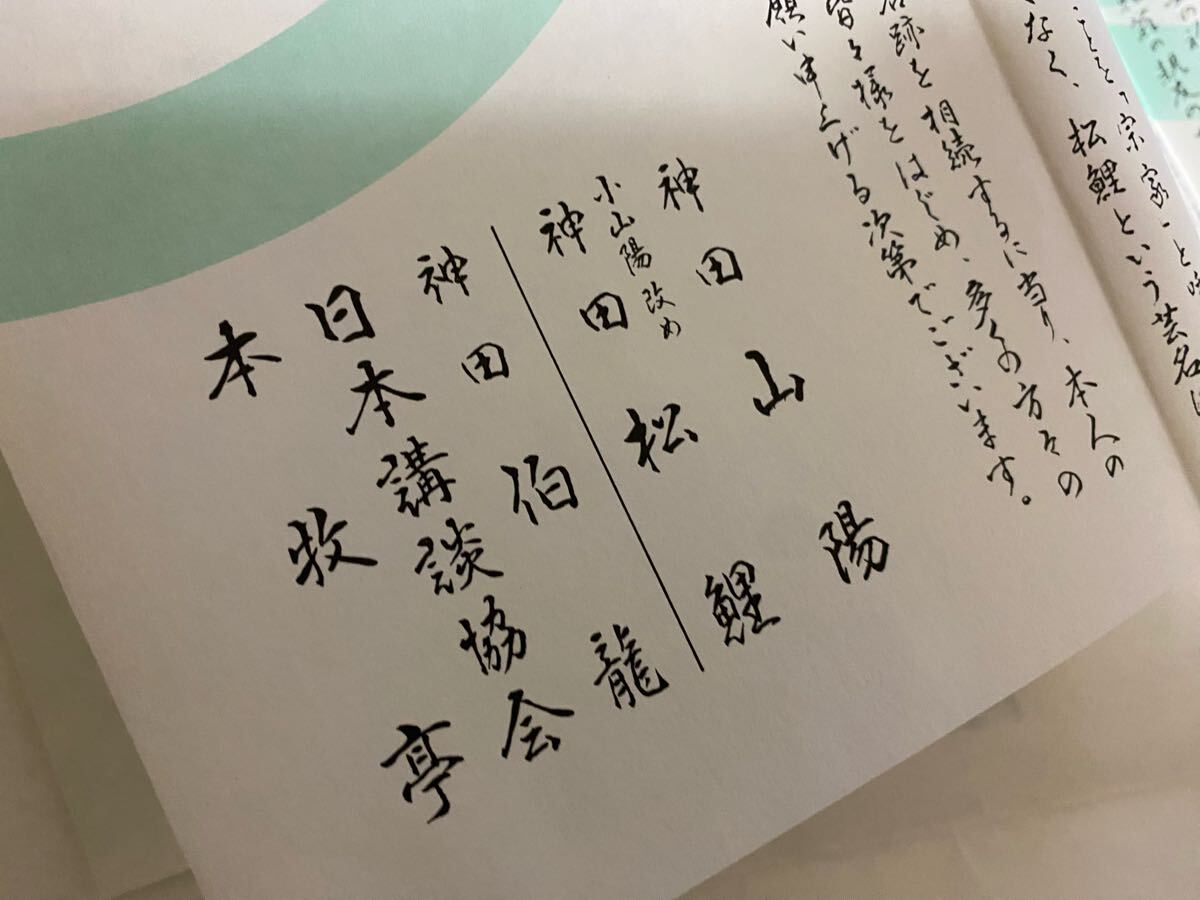 ことを、宗家、と
なく、松鯉という芸名
名跡を相続するに当り、本人の
皆々様をはじめ、多くの方々の
願い申上げる次第でございます。
神田山陽
小山陽改め
神田松鯉
神田伯龍
日本講談協会
本牧亭